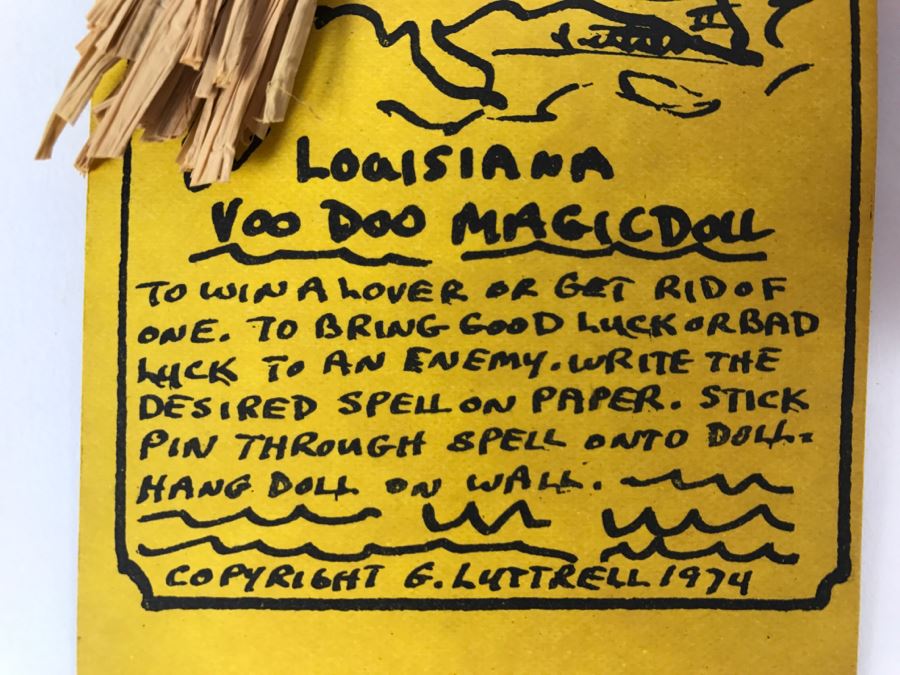 LOUISIANA
VOO DOO MAGIC DOLL
TO WIN A LOVER OR GET RID OF
ONE. TO BRING GOOD LUCK OR BAD
LUCK TO AN ENEMY. WRITE THE
DESIRED SPELL ON PAPER. STICK
PIN THROUGH SPELL ONTO DOLL.
HANG DOLL ON WALL.
COPYRIGHT G. LUTTRELL 1974